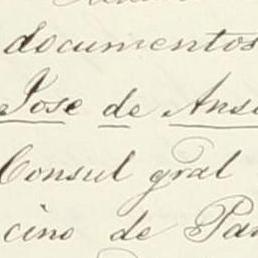 documentos
Jose de Ans
Consul gral
cino de Par